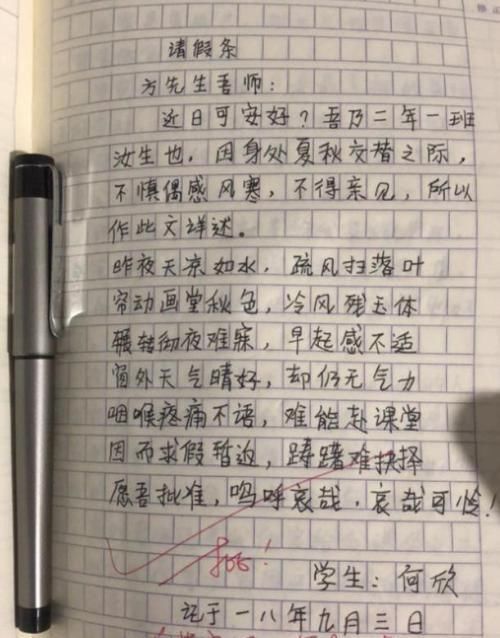 请假条
方先生吾师：
近日可安好？吾乃二年一班
汝生也，因身处夏秋交替之际，
不慎偶感风寒，不得亲见，所以
作此文详述。
昨夜天凉如水，疏风扫落叶
帘动画堂秋色，冷风残玉体
辗转彻夜难寐，早起感不适
窗外天气晴好，却仍无气力
咽喉疼痛不语，难能赴课堂
因而求假暂返，踌躇难抉择
愿吾批准，呜呼哀哉，哀哉可怜！
批！
学生：何欣
记于一八年九月三日